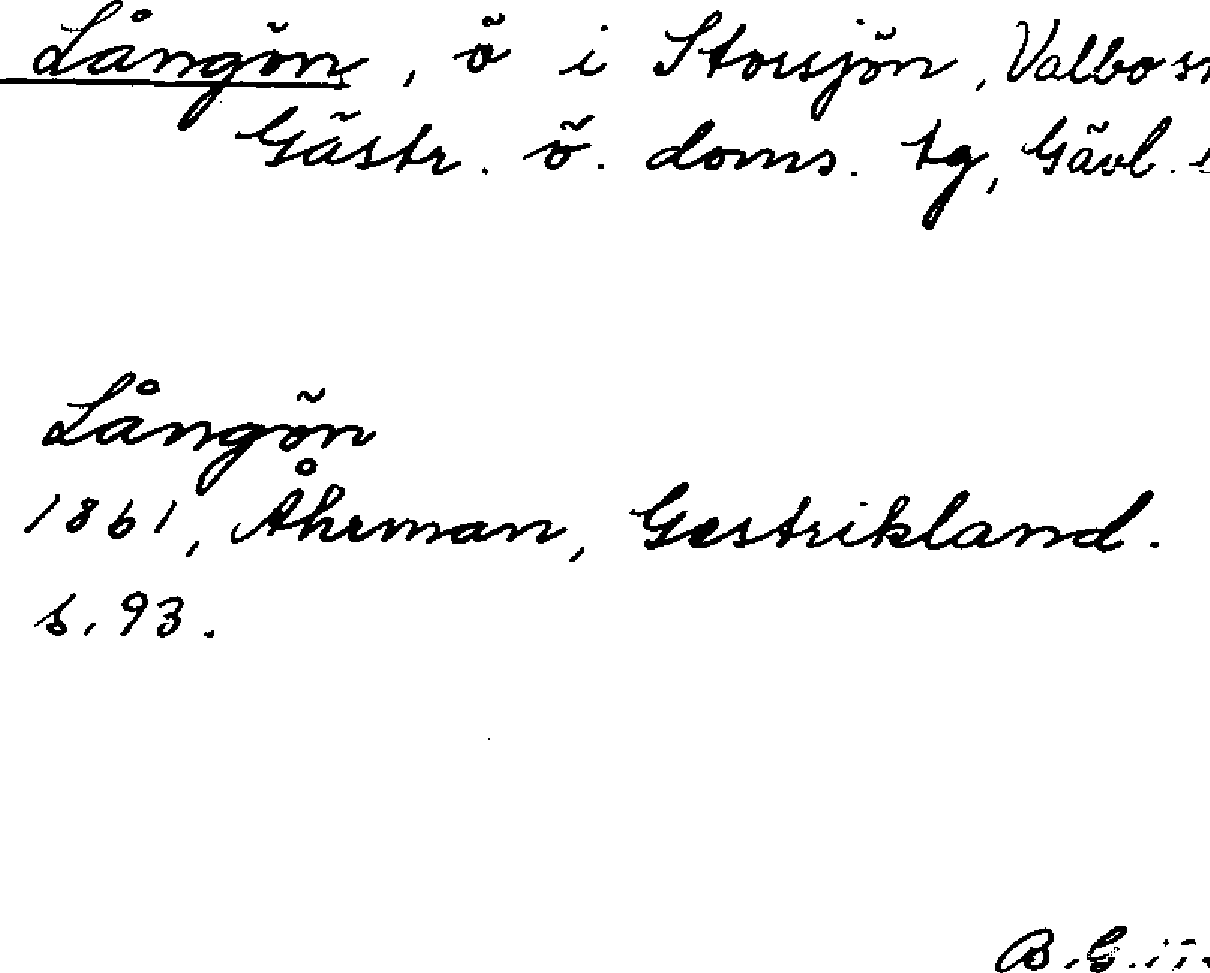 Långön, ö i Storsjön, Valbo sn
Gästr. ö. doms. tg, Gävl.
Långön
1861, Åhrman, Gestrikland.
s. 93.
B.G.